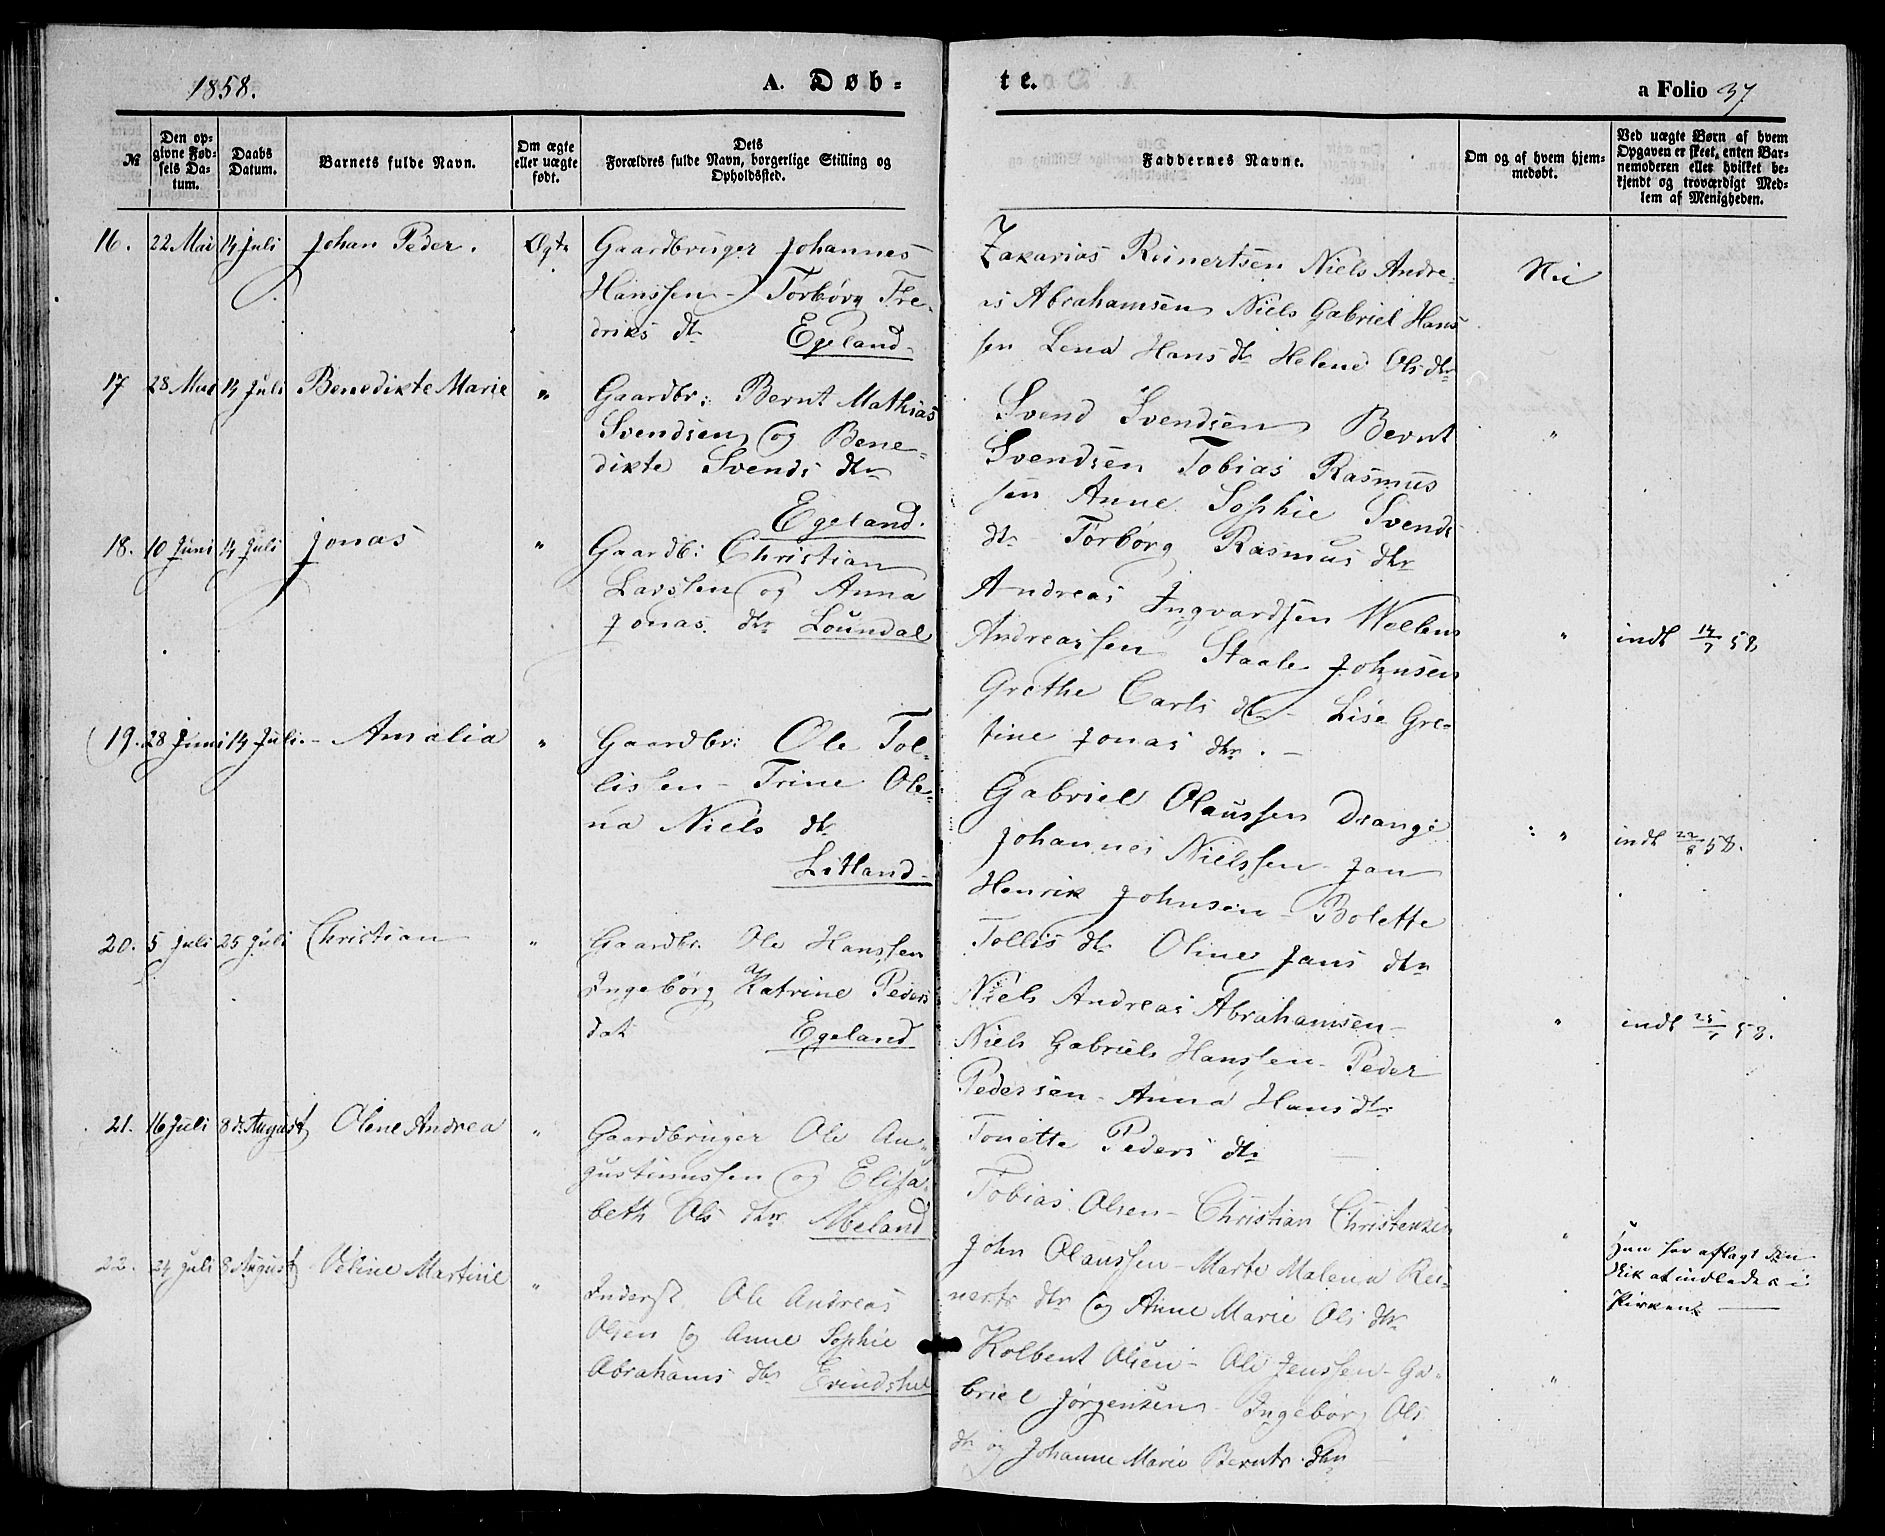 1858.
A. Døb-
te.
a Folio 37
№
Den op-
givne Fød-
sels Da-
tum.
Daabs
Datum.
Barnets fulde Navn.
Om ægte
eller uægte
født.
Dets
Forældres fulde Navn, borgerlige Stilling og
Opholdssted.
Faddernes Navne.
Om og af hvem hjem-
medøbt.
Ved uægte Børn af hvem
Opgaven er skeet, enten Bar-
nemoderen eller hvilket be-
kjendt og troværdigt Med-
lem af Menigheden.
16. 22 Mai 14 Juli Johan Peder. Ægte
Gaardbruger Johannes
Hanssen - Torbørg Fre-
driks dtr
Egeland -
Zakarias Reinertsen Niels Andre-
as Abrahamsen Niels Gabriel Hans
sen Lena Hans dtr Helene Ols dtr
Nei
17 28 Mai 14 Juli Benedikte Marie "
Gaardbr: Bernt Mathias
Svendsen og Bene-
dikte Svends dtr
Egeland.
Svend Svendsen Bernt
Svendsen Tobias Rasmus
sen Anne Sophie Svends
dtr Torbørg Rasmus dtr
"
18. 10 Juni 14 Juli Jonas "
Gaardb: Christian
Larssen og Anna
Jonas dtr Loundal
Andreas Ingvardsen Wellem
Andreassen Staale Johnsen
Grethe Carls dtr - Lise Gre-
tine Jonas dtr. -
"
indt 14/7 58
19. 28 Juni 14 Juli. - Amalia "
Gaardbr: Ole Tol-
lissen - Trine Ole-
na Niels dtr
Litland -
Gabriel Olaussen Drange
Johannes Nielssen - Jan
Henrik Johnsen - Bolette
Tollis dtr Oline Jans dtr
"
indt 22/8 58.
20. 5 Juli 25 Juli Christian "
Gaardbr. Ole Hanssen
og
Ingebørg Katrine Peders
dat Egeland
Niels Andreas Abrahamsen -
Niels Gabriels Hanssen - Peder
Pedersen - Anna Hans dtr
Tonette Peders dtr
"
indt 25/7 58.
21. 16 Juli 8 de August Olene Andrea "
Gaardbruger Ole Au-
gustinussen og Elisa-
beth Ols dtr Meland
Tobias Olsen - Christian Christensen
John Olaussen - Marte Malena Rei-
nerts dtr og Anne Marie Ols dtr
"
22. 24 Juli 8 August Veline Martine "
Inderst. Ole Andreas
Olsen og Anne Sophie
Abrahams dtr Erindshel
Kolbent Olsen - Ole Jenssen - Ga-
briel Jørgensen - Ingebørg Ols
dtr og Johanne Marie Bernts dtr
"
Hun har aflagt den
Skik at indledes i
Kirken